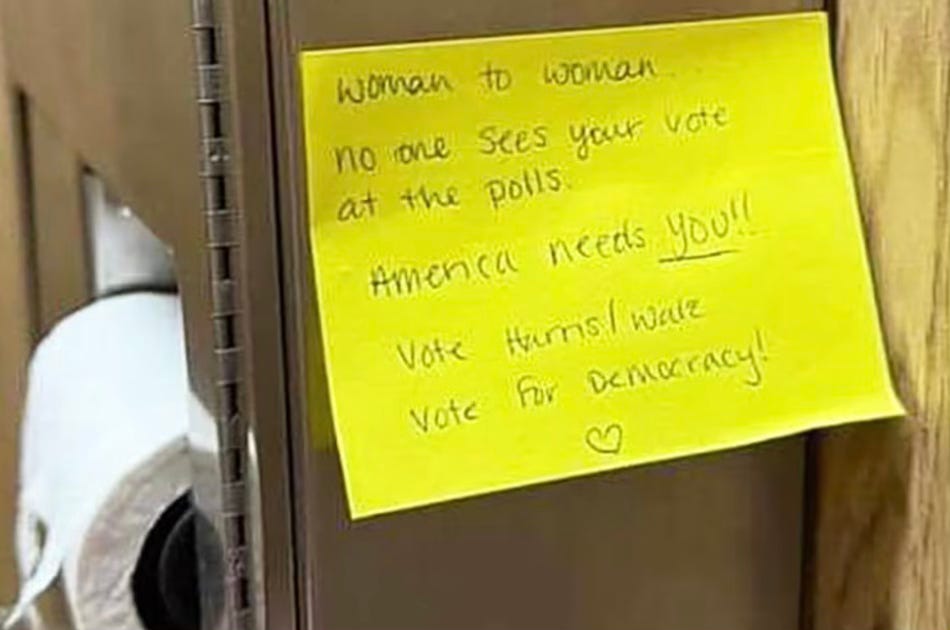 woman to woman..
no one sees your vote
at the polls.
America needs YOU!!
Vote Harris/Walz
Vote for Democracy!
♡